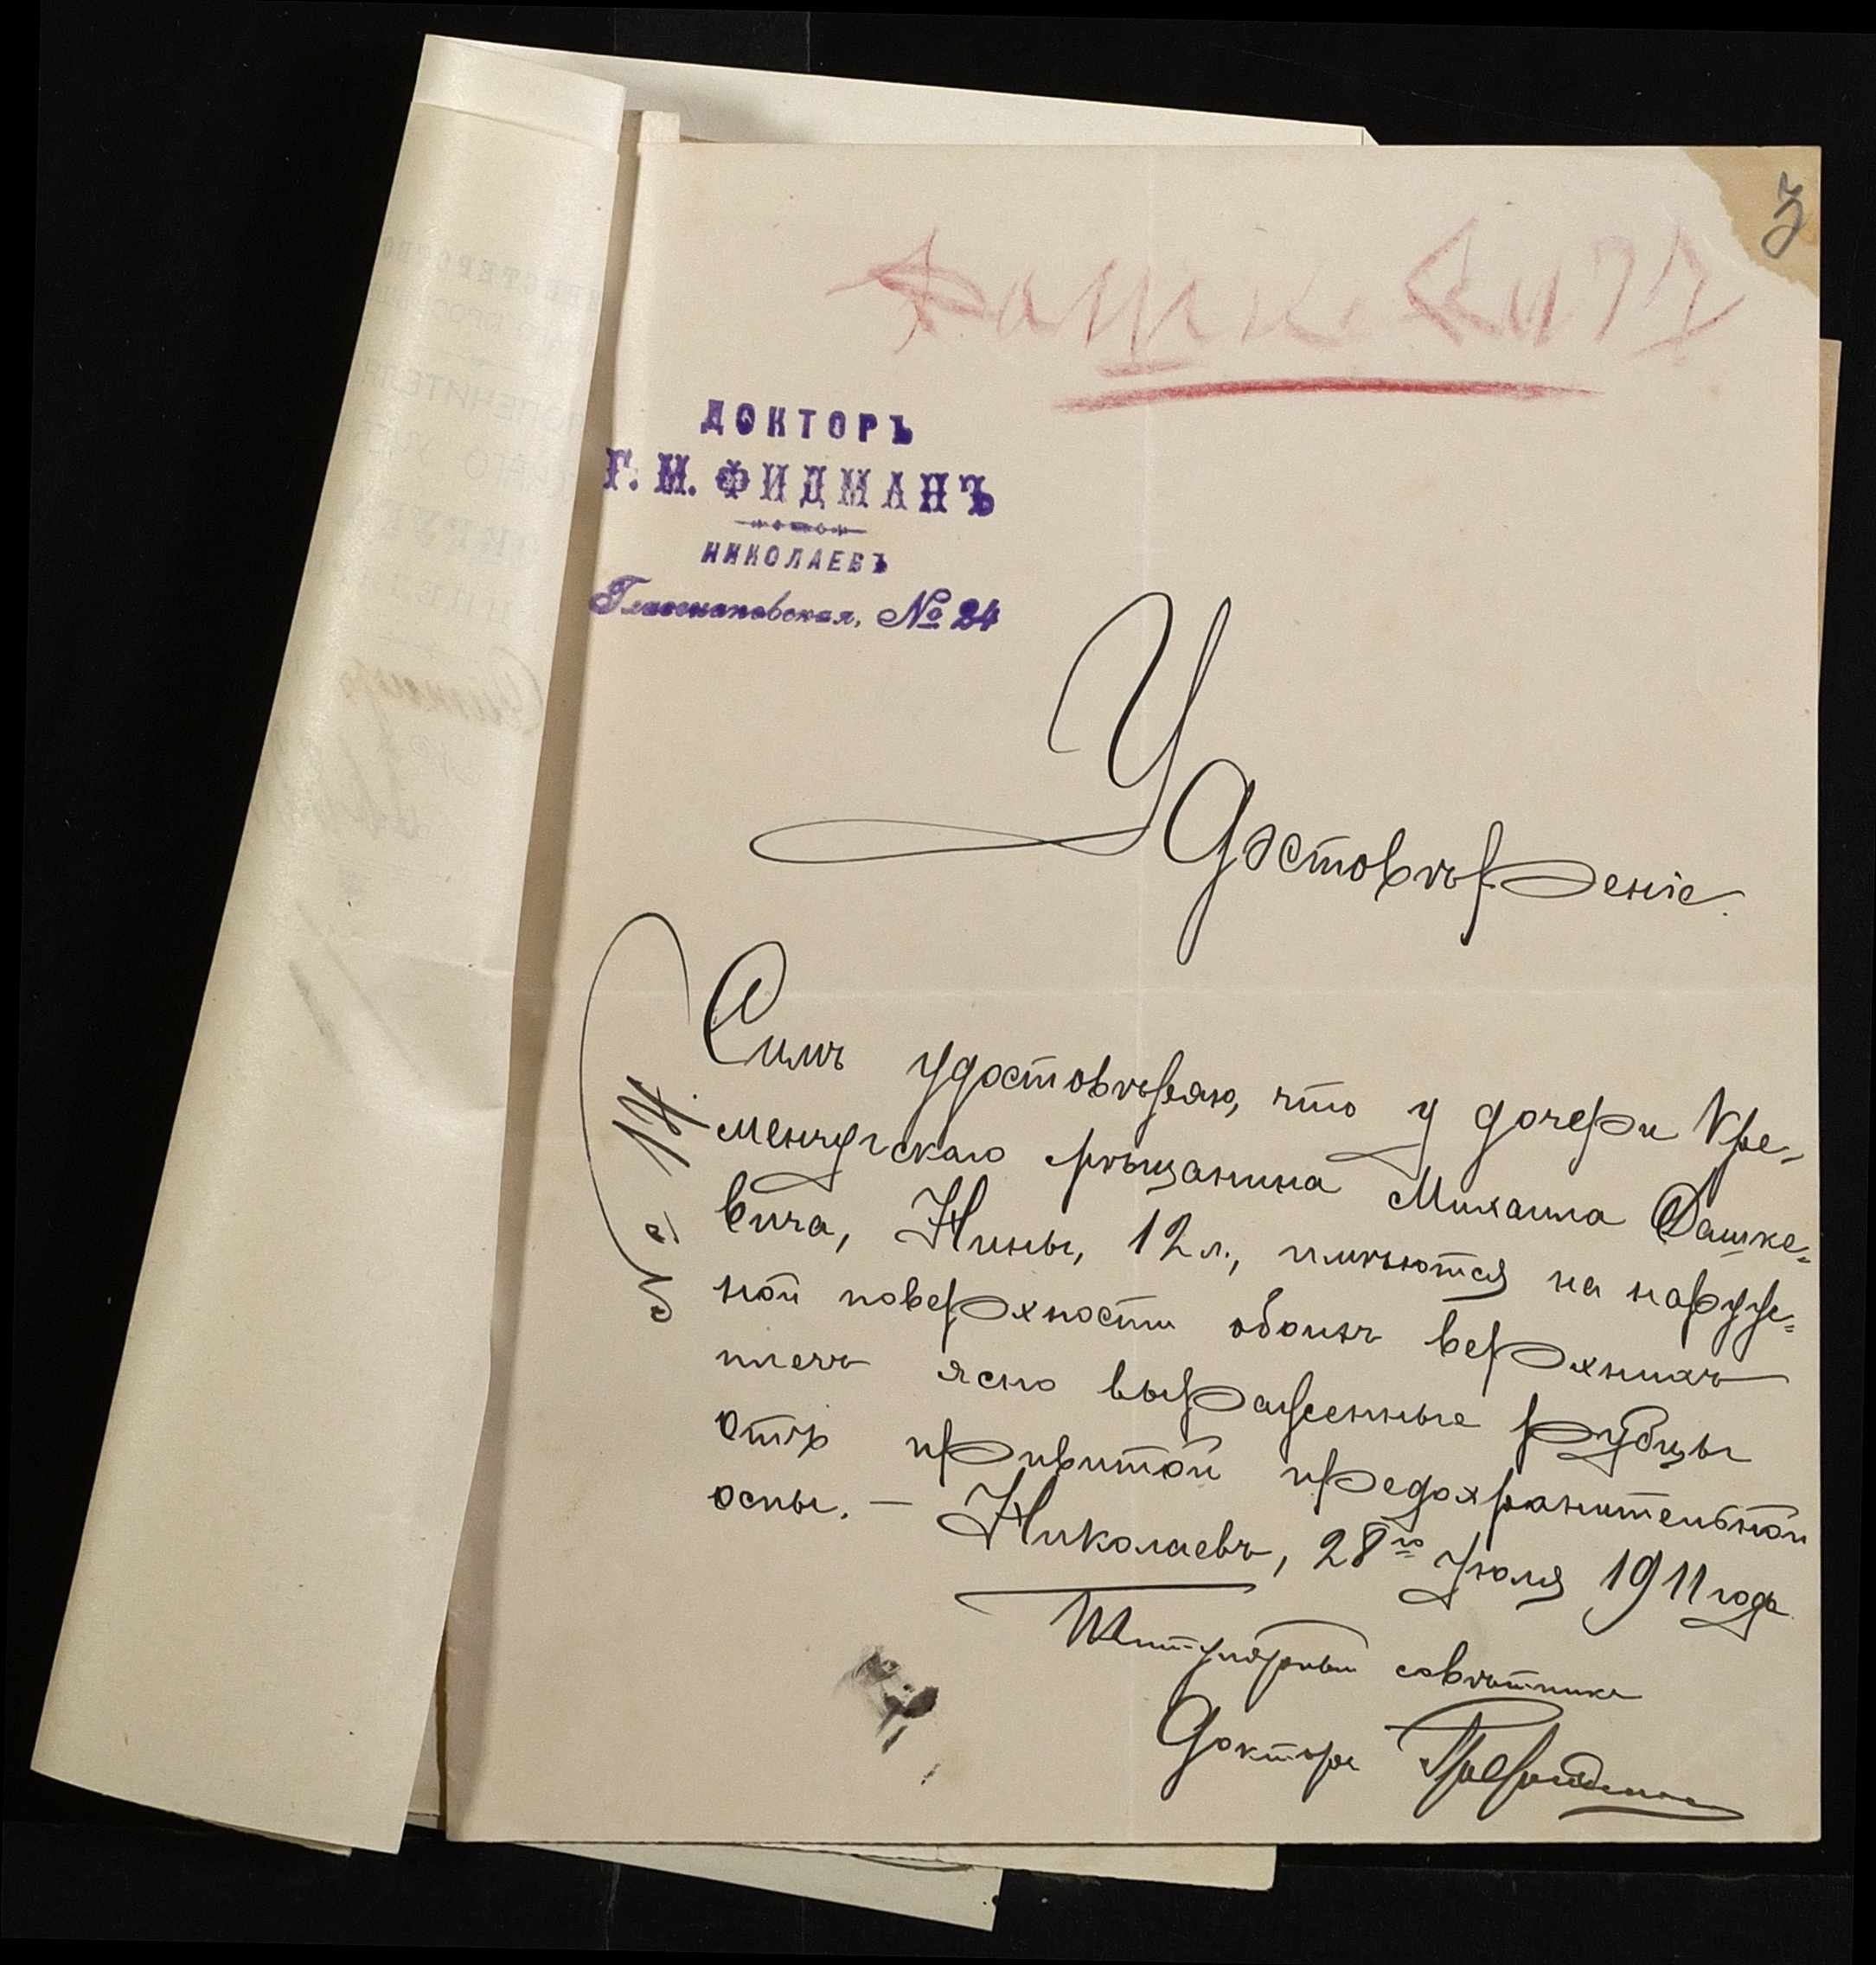 3
Дашкевичъ
ДОКТОРЪ
Г. М. ФИДМАНЪ
НИКОЛАЕВЪ
Глазенаповская, № 24
Удостовѣреніе.
№ 174.
Симъ удостовѣряю, что у дочери Кре-
менчугскаго мѣщанина Михаила Дашке-
вича, Нины, 12 л., имѣются на наруж-
ной поверхности обоихъ верхнихъ
плечъ ясно выраженные рубцы
отъ привитой предохранительной
оспы. — Николаевъ, 28го Іюля 1911 года
Титулярный совѣтникъ
Докторъ